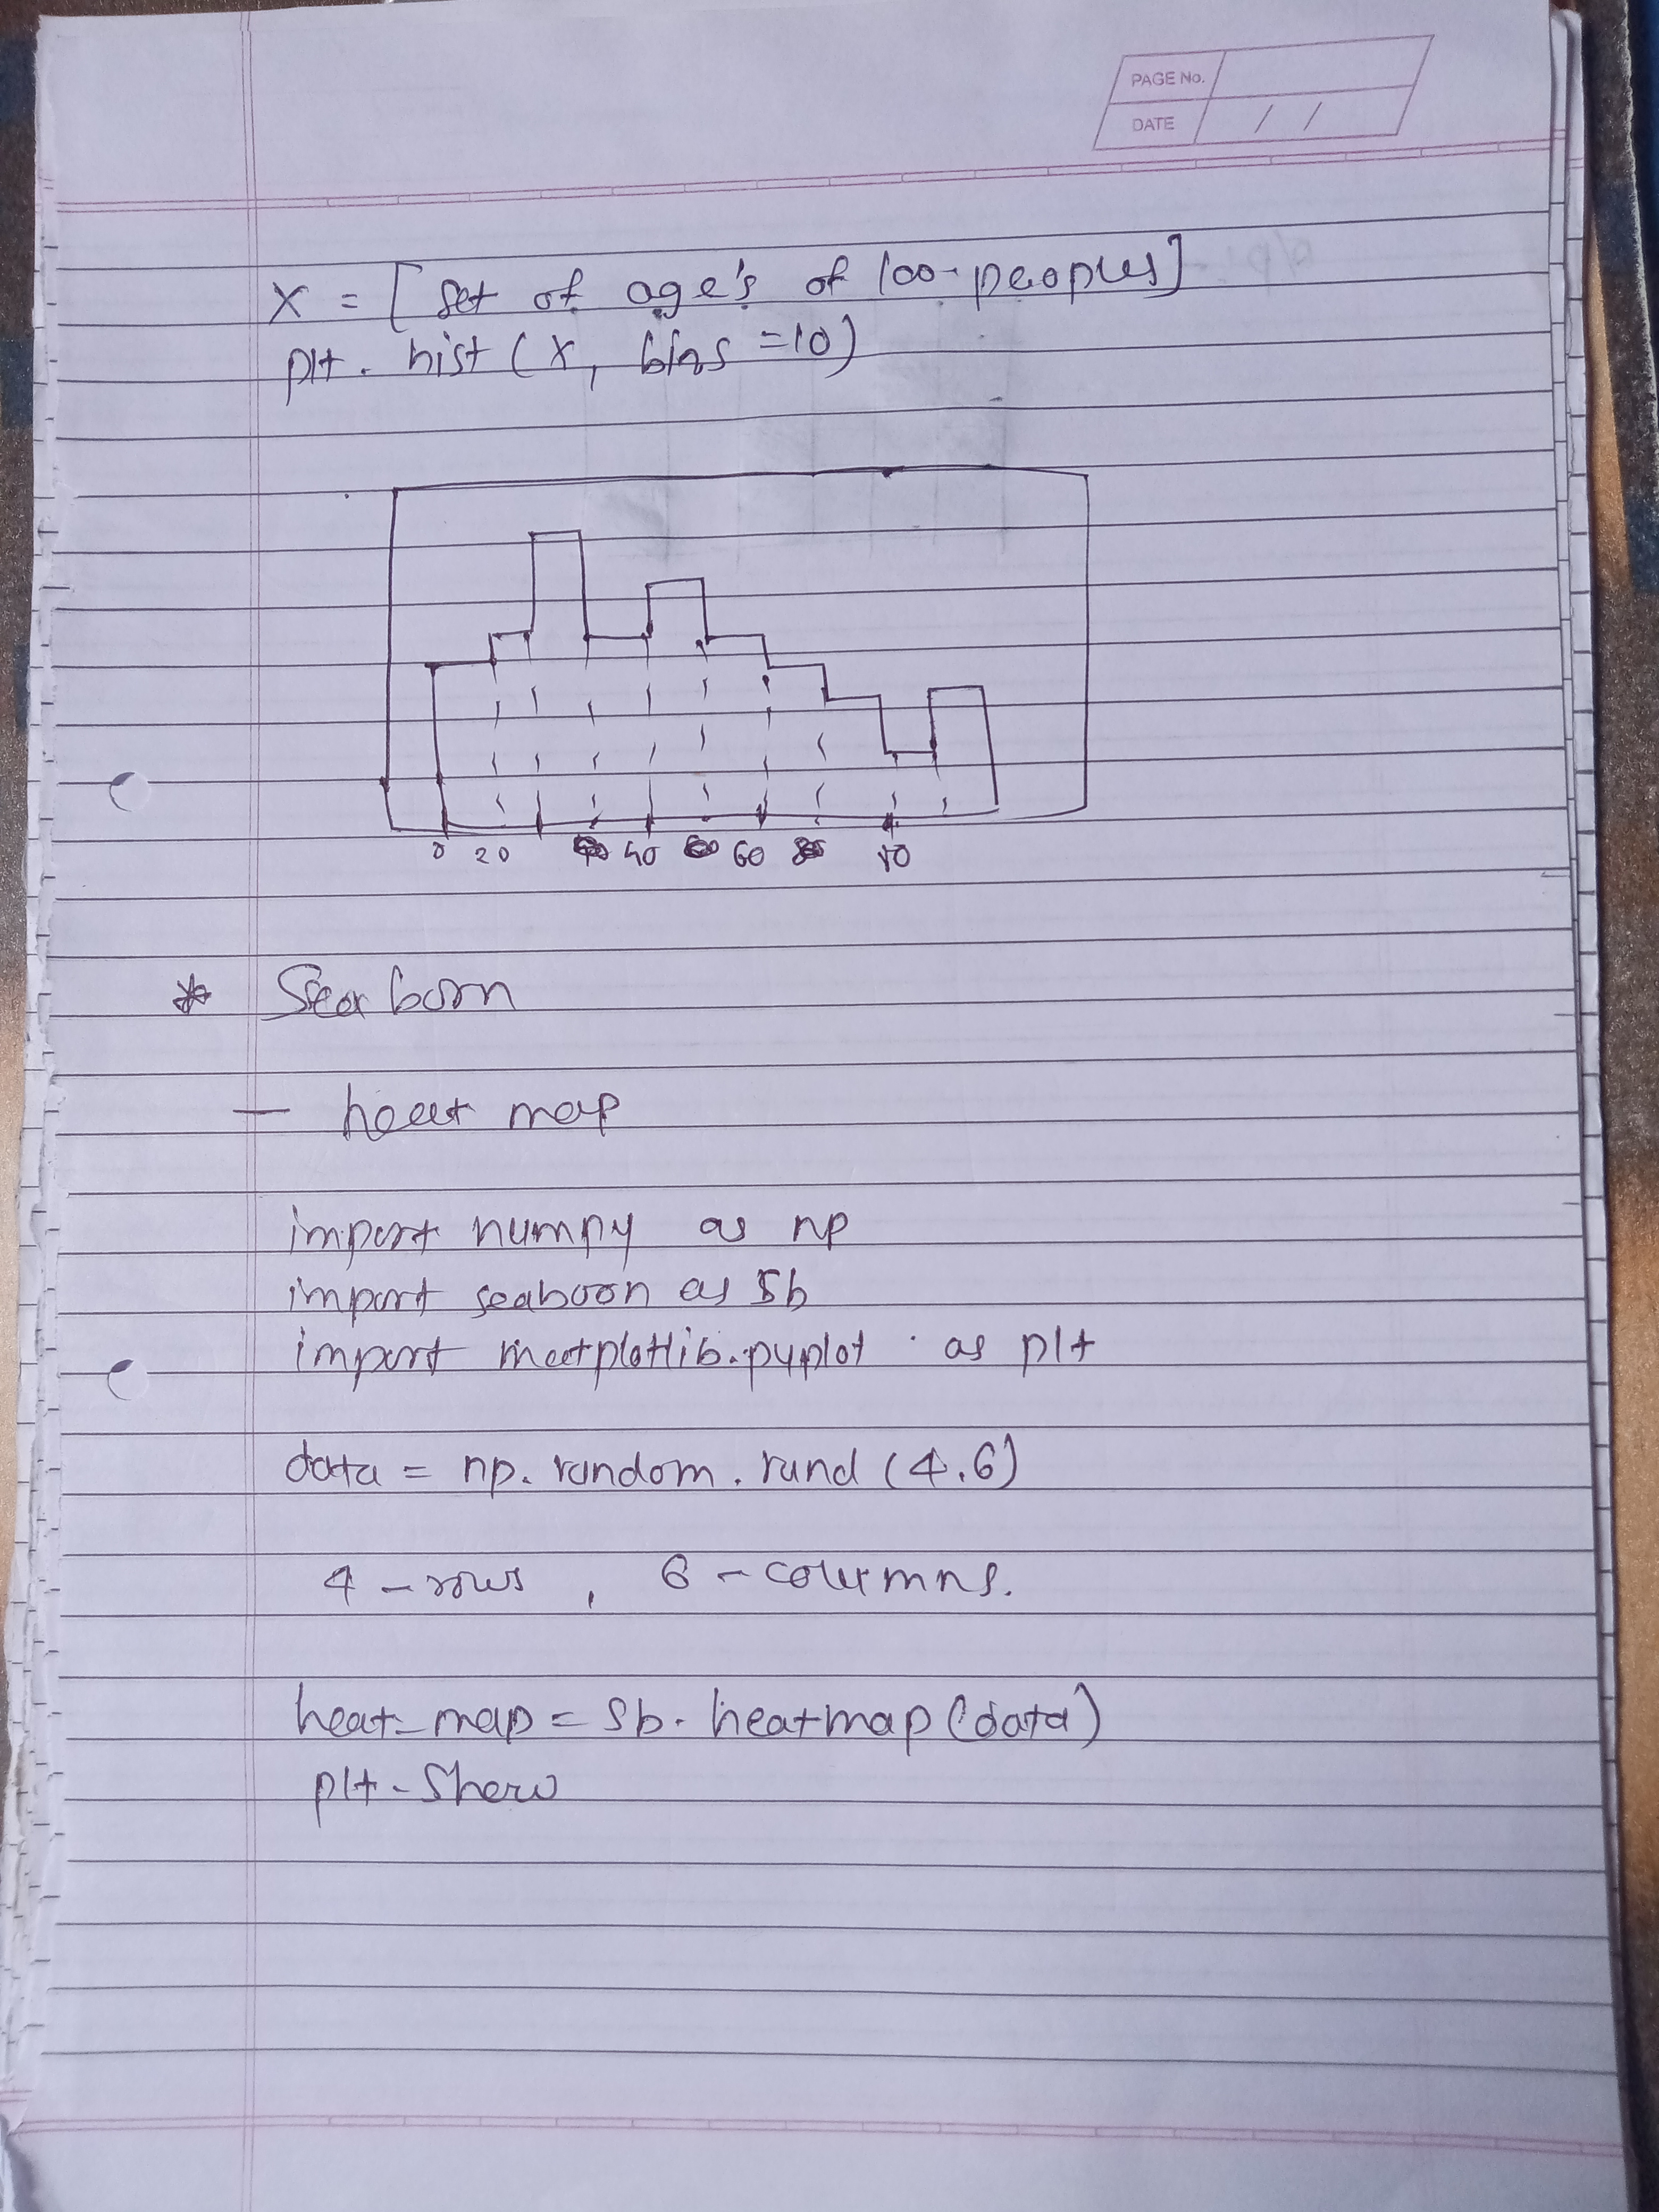 PAGE No.
DATE / /
X = [ set of age's of 100 - peoples]
plt . hist ( X, bins = 10 )
0 20 40 60 80
* Seaborn
- heat map
import numpy as np
import seaboon as sb
import matplotlib.pyplot as plt
data = np. random . rand (4,6)
4 - rows , 6 - columns.
heat_map = sb. heatmap (data)
plt - Show